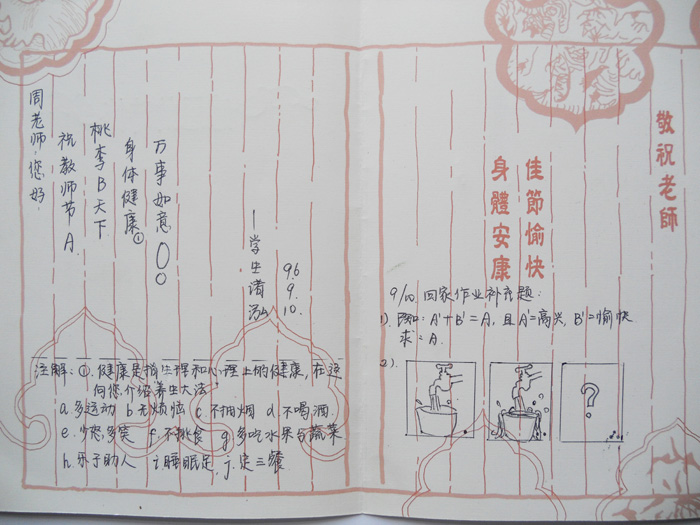 周老师,您好.
祝教师节A.
桃李B天下
身体健康①
万事如意○○
—学生
96.
9.
10.
注解:①.健康是指生理和心理上的健康,在这
向您介绍养生大法
a.多运动 b无烦恼 c不抽烟 d不喝酒.
e.少怒多笑 f.不挑食 g.多吃水果与蔬菜
h.乐于助人 i睡眠足, j.定三餐
敬祝老師
佳節愉快
身體安康
9/10.回家作业补充题:
1).已知:A'+B'=A,且A'=高兴,B'=愉快.
求=A.
2).
?